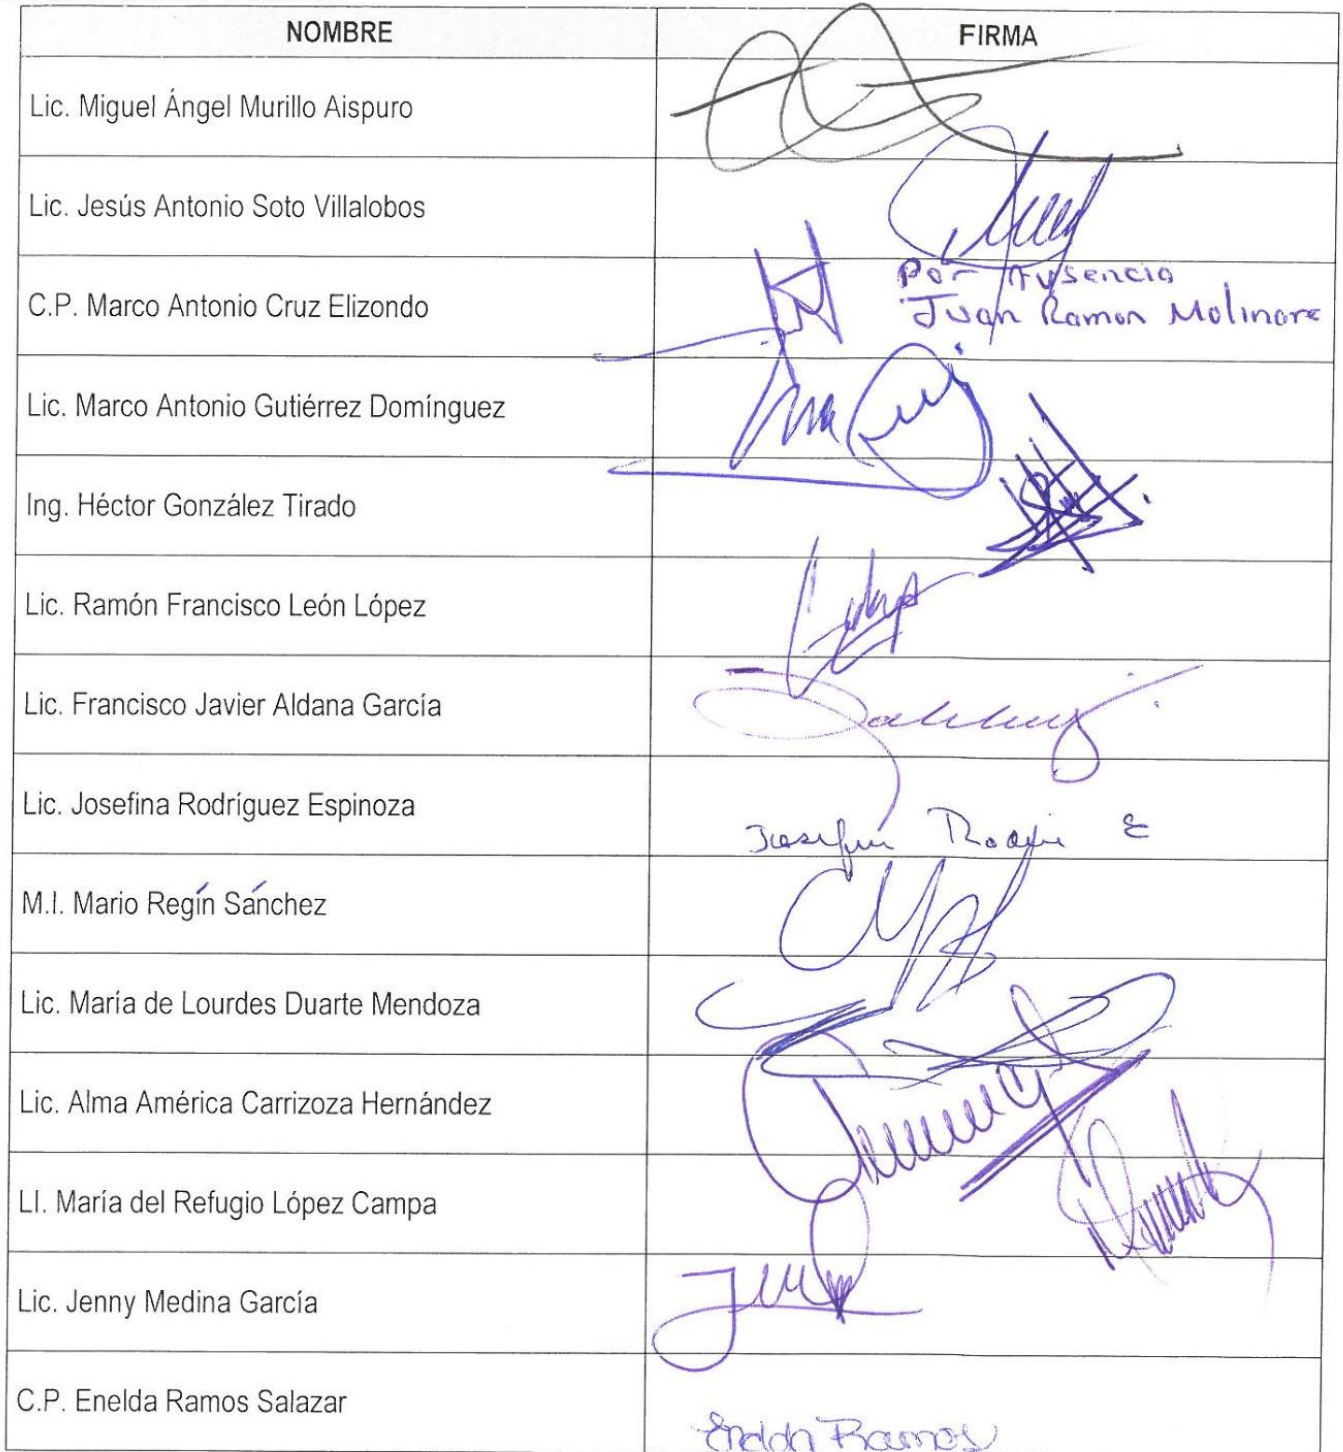 NOMBRE FIRMA
Lic. Miguel Ángel Murillo Aispuro
Lic. Jesús Antonio Soto Villalobos
C.P. Marco Antonio Cruz Elizondo
Por Aysencia
Juan Ramon Molinare
Lic. Marco Antonio Gutiérrez Domínguez
Ing. Héctor González Tirado
Lic. Ramón Francisco León López
Lic. Francisco Javier Aldana García
Lic. Josefina Rodríguez Espinoza
M.I. Mario Regín Sánchez
Lic. María de Lourdes Duarte Mendoza
Lic. Alma América Carrizoza Hernández
LI. María del Refugio López Campa
Lic. Jenny Medina García
C.P. Enelda Ramos Salazar
Enelda Ramos